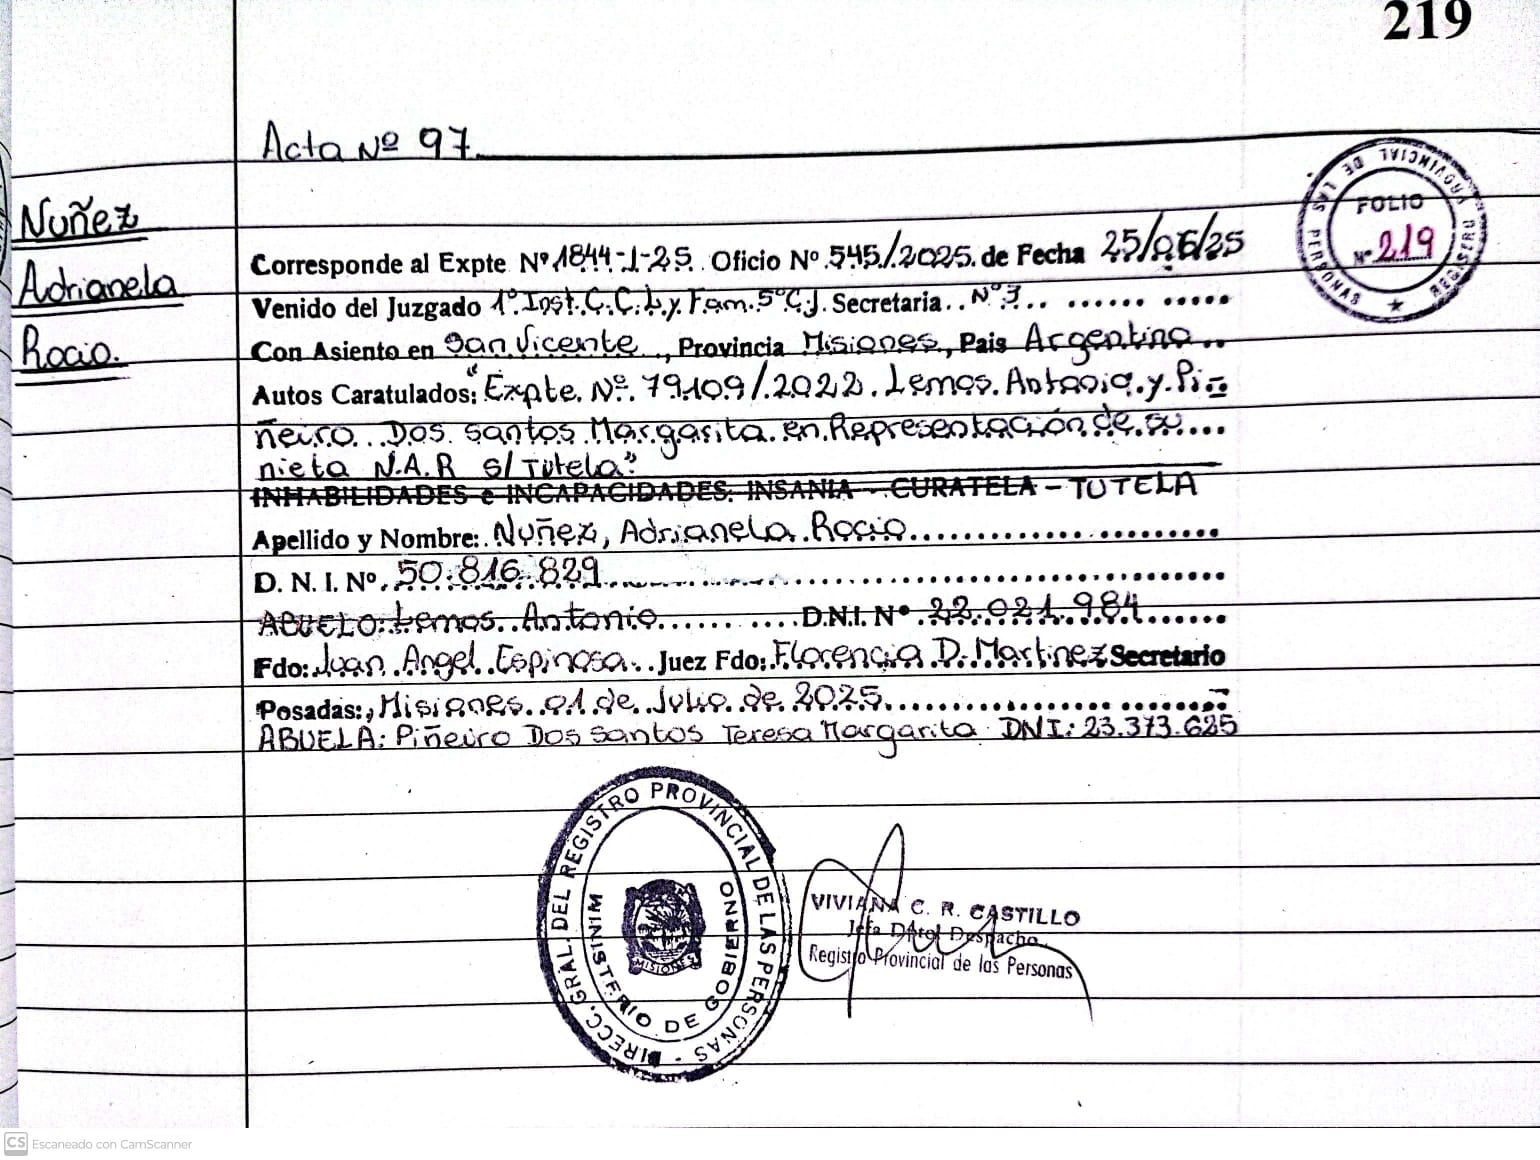 219
Acta Nº 97
Nuñez
Adrianela
Rocio.
REGISTRO PROVINCIAL DE LAS PERSONAS
FOLIO
Nº 219
Corresponde al Expte Nº 1844-J-25 Oficio Nº 545/2025 de Fecha 25/06/25
Venido del Juzgado 1º Inst. C. C. L. y Fam. 5º C.J. Secretaria Nº 3
Con Asiento en San Vicente, Provincia Misiones, Pais Argentina
Autos Caratulados: "Expte. Nº 79109/2022. Lemos Antonio y Pi-
ñeiro Dos santos Margarita en Representación de su
nieta N.A.R s/ Tutela"
INHABILIDADES e INCAPACIDADES: INSANIA - CURATELA - TUTELA
Apellido y Nombre: Nuñez, Adrianela Rocio
D. N. I. Nº 50.816.829
ABUELO: Lemos Antonio D.N.I. Nº 22.021.984
Fdo: Juan Angel Espinosa Juez Fdo: Florencia D. Martinez Secretario
Posadas:, Misiones 01 de Julio de 2025
ABUELA: Piñeiro Dos santos Teresa Margarita DNI: 23.373.625
DIRECC. GRAL. DEL REGISTRO PROVINCIAL DE LAS PERSONAS
MINISTERIO DE GOBIERNO
MISIONES
VIVIANA C. R. CASTILLO
Jefa Dptol Despacho
Registro Provincial de las Personas
CS Escaneado con CamScanner